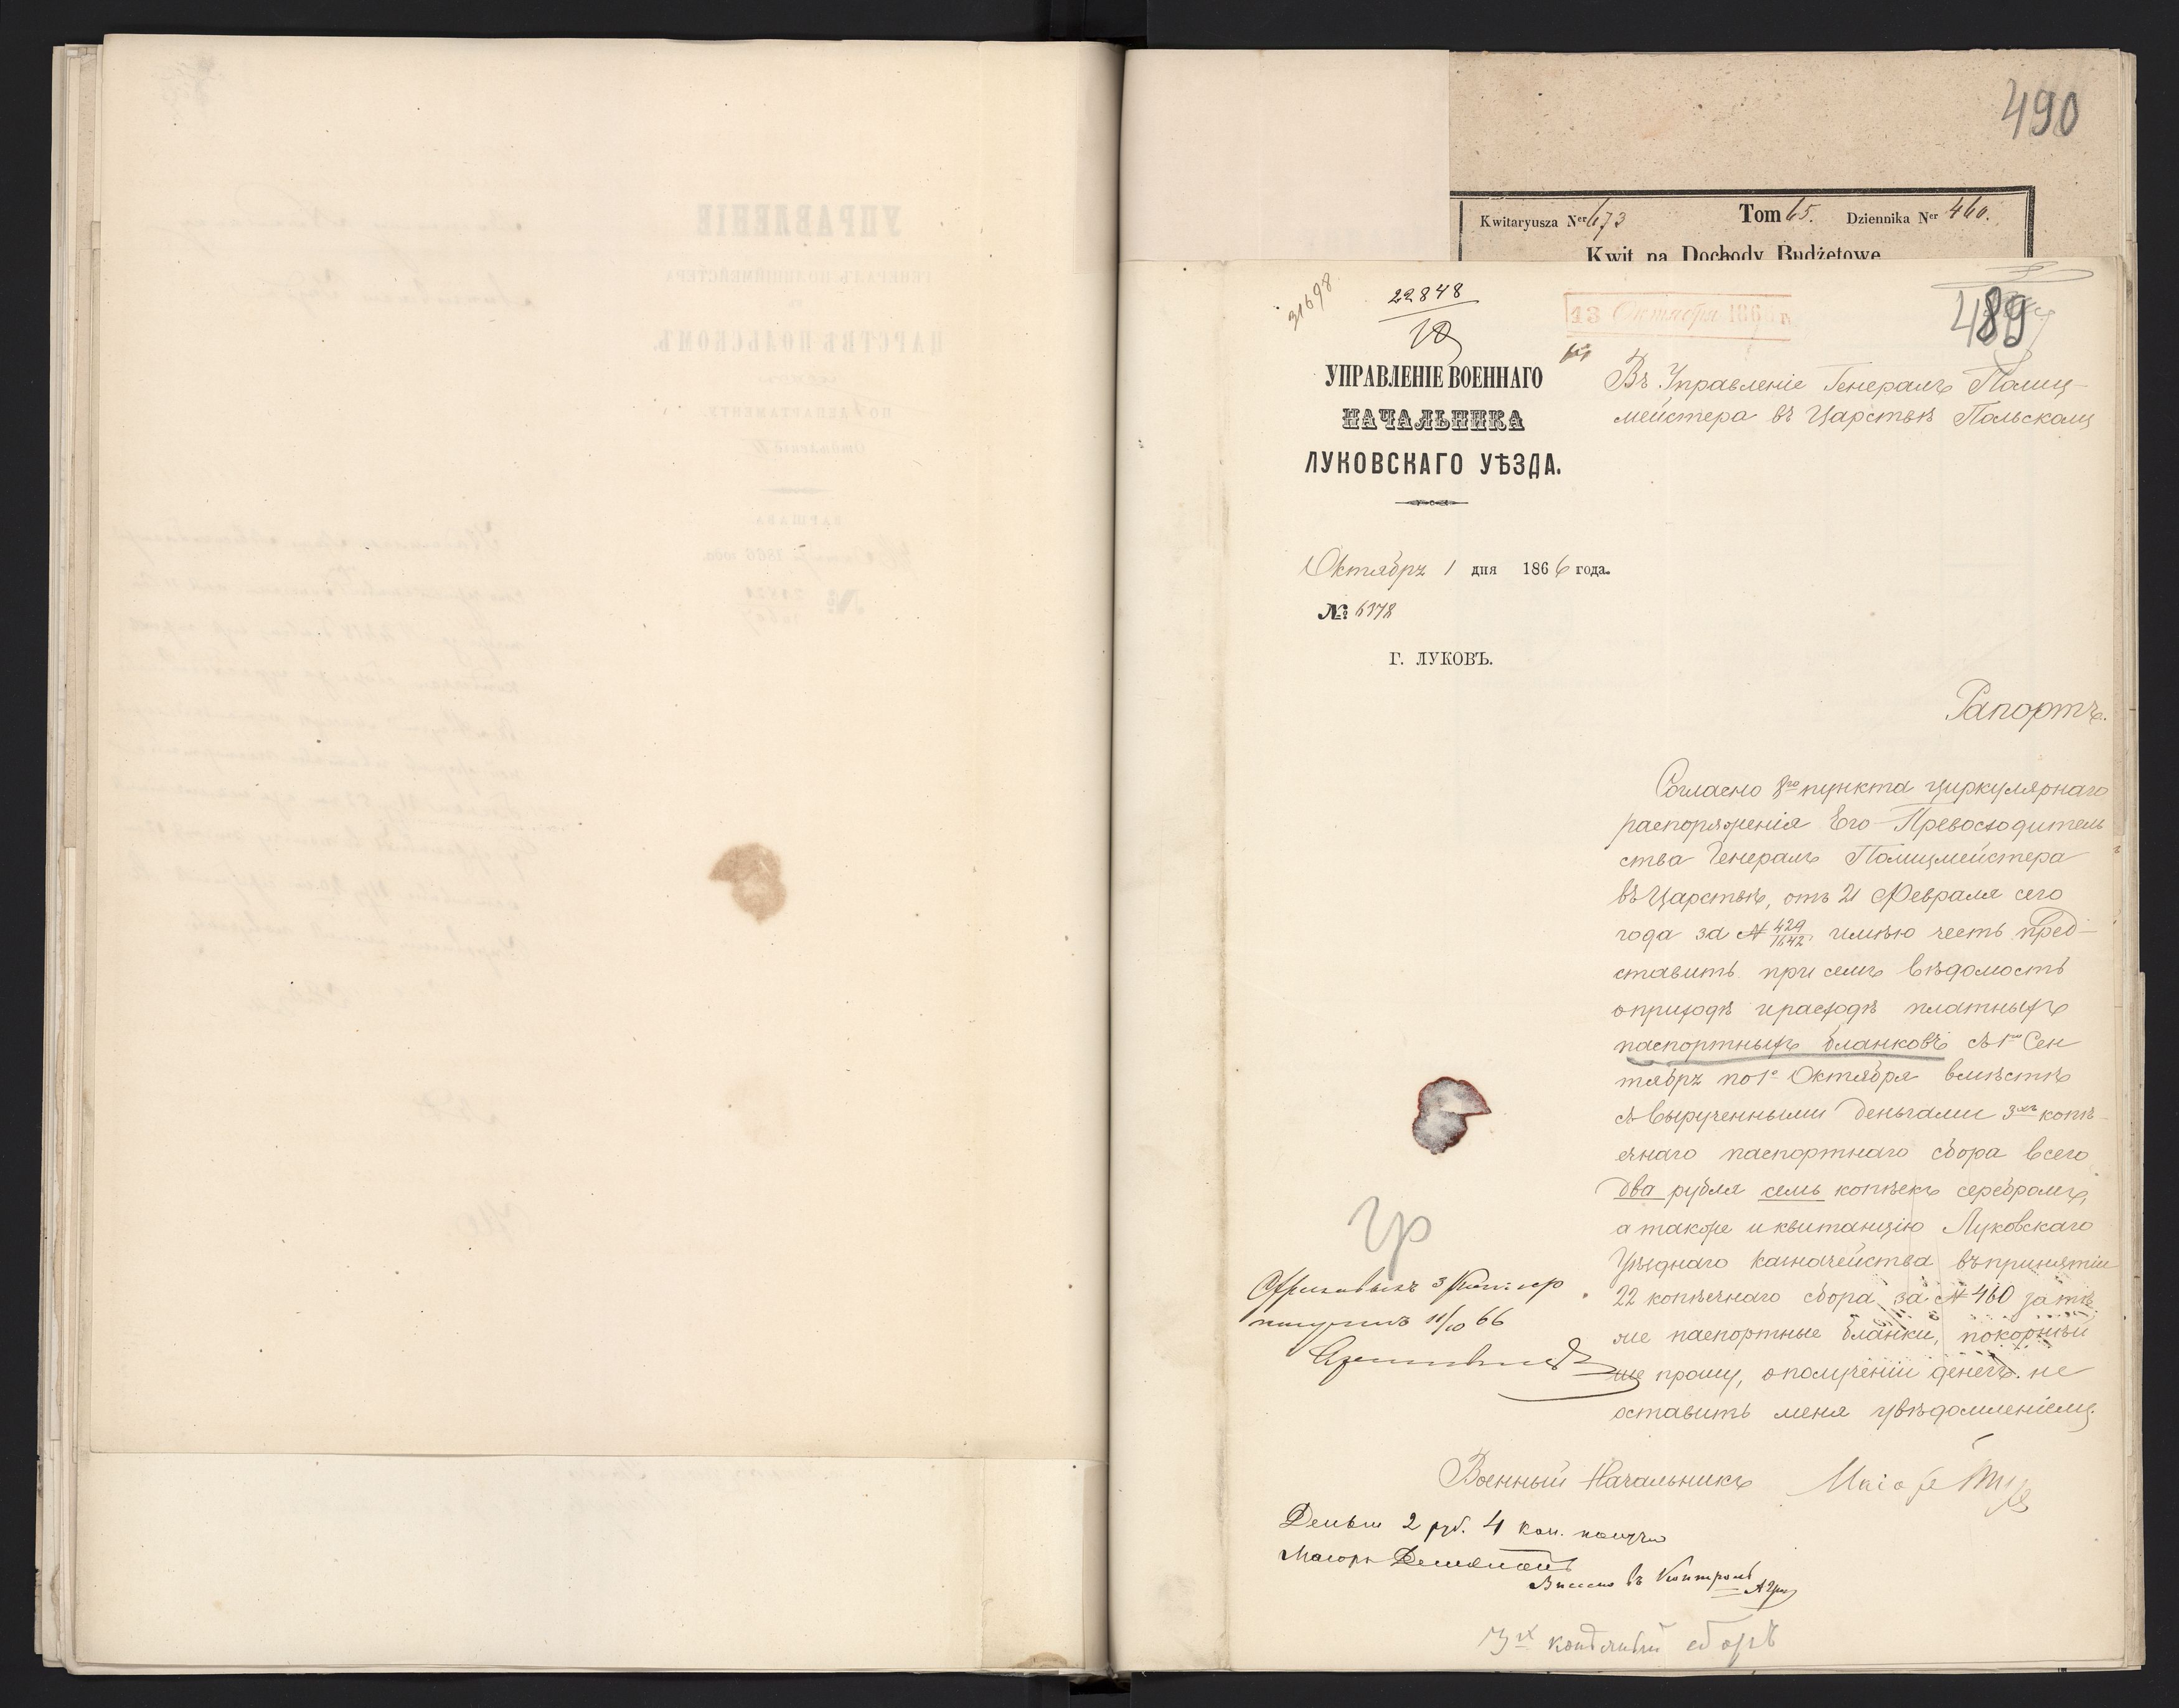 490
Kwitaryusza Ner 673 Tom 65. Dziennika Ner 460.
Kwit na Dochody Budżetowe
31698
22848
13 Октября 186 г.
489
УПРАВЛЕНІЕ ВОЕННАГО
НАЧАЛЬНИКА
ЛУКОВСКАГО УѢЗДА.
Октября 1 дня 1866 года.
№ 6378
Г. ЛУКОВЪ.
Въ Управленіе Генералъ Полиц-
мейстера въ Царствѣ Польскомъ
Рапортъ.
Согласно 8го пункта циркулярнаго
распоряженія Его Превосходитель
ства Генералъ Полицмейстера
въ Царствѣ, отъ 21 Февраля сего
года за № 429/1642 имѣю честь пред-
ставить при семъ вѣдомость
о приходѣ и расходѣ платныхъ
паспортныхъ бланковъ съ 1го Сен
тября по 1е Октября вмѣстѣ
съ вырученными деньгами 3хъ копѣ-
ечнаго паспортнаго сбора всего
два рубля семь копѣекъ серебромъ,
а также и квитанцію Луковскаго
Уѣзднаго казначейства въ принятіи
22 копѣечнаго сбора за № 460 за тѣ
же паспортные бланки, покорнѣй
ше прошу, о полученіи денегъ не
оставить меня увѣдомленіемъ.
Военный Начальникъ Маіоръ
получилъ 11/10 66
Деньги 2 руб. 4 коп. получ
Маіоръ
Внесено въ Контроль
3хъ копѣечный сборъ